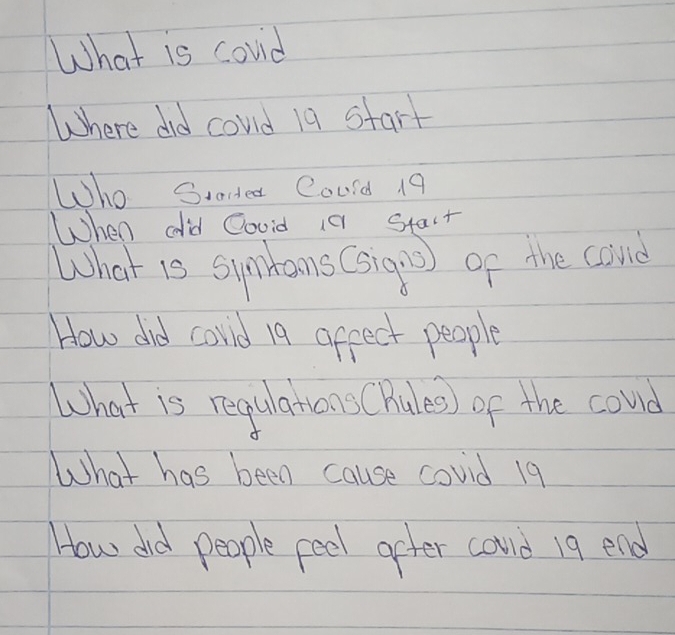 What is covid
Where did covid 19 start
Who Started Covid 19
When did Covid 19 Start
What is symntoms(signs) of the covid
How did covid 19 affect people
What is regulations(Rules) of the covid
What has been cause covid 19
How did people feel after covid 19 end